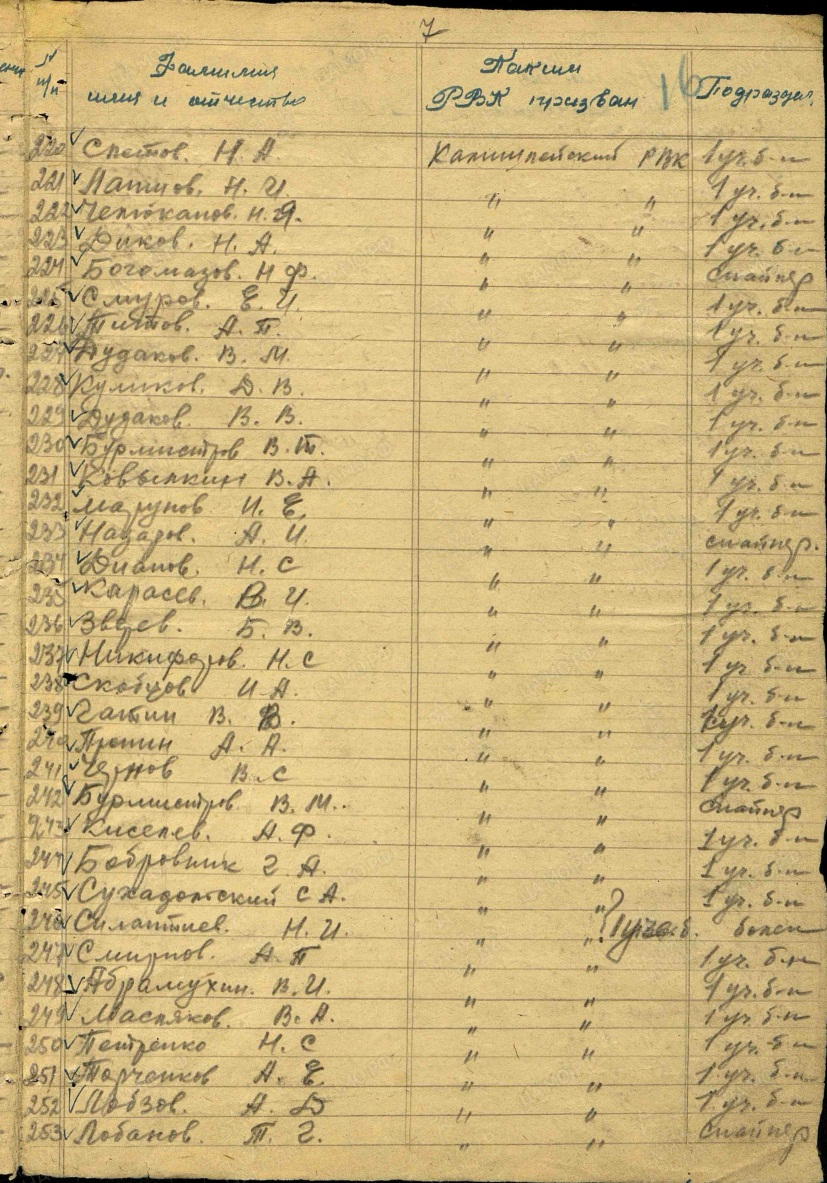 7
№ п/п Фамилия имя и отчество Каким РВК призван 16 Подраздел.
220 Спетов. Н. А. РВК 1 уч. б-н
221 Лапшов. Н. И. " " 1 уч. б-н
222 Н. Я. " " 1 уч. б-н
223 Диков. Н. А. " " 1 уч. б-н
224 Богомазов. Н Ф. " " снайпер
225 Смуров. Е. И. " " 1 уч. б-н
226 Титов. А. П. " " 1 уч. б-н
227 Дудаков. В. М. " " 1 уч. б-н
228 Куликов. Д. В. " " 1 уч. б-н
229 Дудаков. В. В. " " 1 уч. б-н
230 Бурмистров В. Т. " " 1 уч. б-н
231 Ковылкин В. А. " " 1 уч. б-н
232 Марунов И. Е. " " 1 уч. б-н
233 Назаров. А. И. " " снайпер.
234 Дианов. Н. С " " 1 уч. б-н
235 Карасев. В. И. " " 1 уч. б-н
236 Зверев. Б. В. " " 1 уч. б-н
237 Никифоров. Н. С " " 1 уч. б-н
238 Скобцов И А. " " 1 уч. б-н
239 Гатин В. В. " " 1 уч. б-н
240 Пронин А. А. " " 1 уч. б-н
241 Чернов В. С " " 1 уч. б-н
242 Бурмистров В. М. " " снайпер
243 Киселев. А. Ф. " " 1 уч. б-н
244 Бобровник Г. А. " " 1 уч. б-н
245 Сухадольский С А. " " 1 уч. б-н
246 Силантиев. Н. И. " " ? болен
247 Смирнов. А. П " " 1 уч. б-н
248 Абрамухин. В. И. " " 1 уч. б-н
249 Масляков. В. А. " " 1 уч. б-н
250 Петренко Н. С " " 1 уч. б-н
251 Торченков А. Е. " " 1 уч. б-н
252 Лобзов. А. Д " " 1 уч. б-н
253 Лобанов. Т. Г. " " снайпер